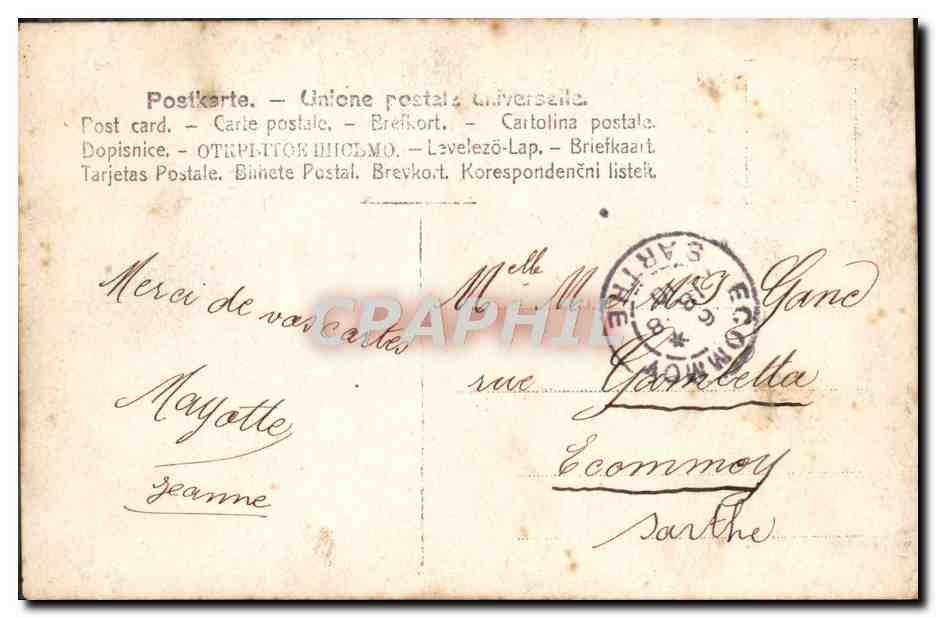 Postkarte. – Unione postale universelle.
Post card. – Carte postale. – Brefkort. – Cartolina postale.
Dopisnice. – ОТКРЫТОЕ ПИСЬМО. – Levelezö-Lap. – Briefkaart.
Tarjetas Postale. Bilhete Postal. Brevkort. Korespondenčni listek.
Merci de vos cartes
Mayotte
Jeanne
Melle Ganc
rue Gambetta
Ecommoy
Sarthe
ECOMMOY
SARTHE
CPAPHIL